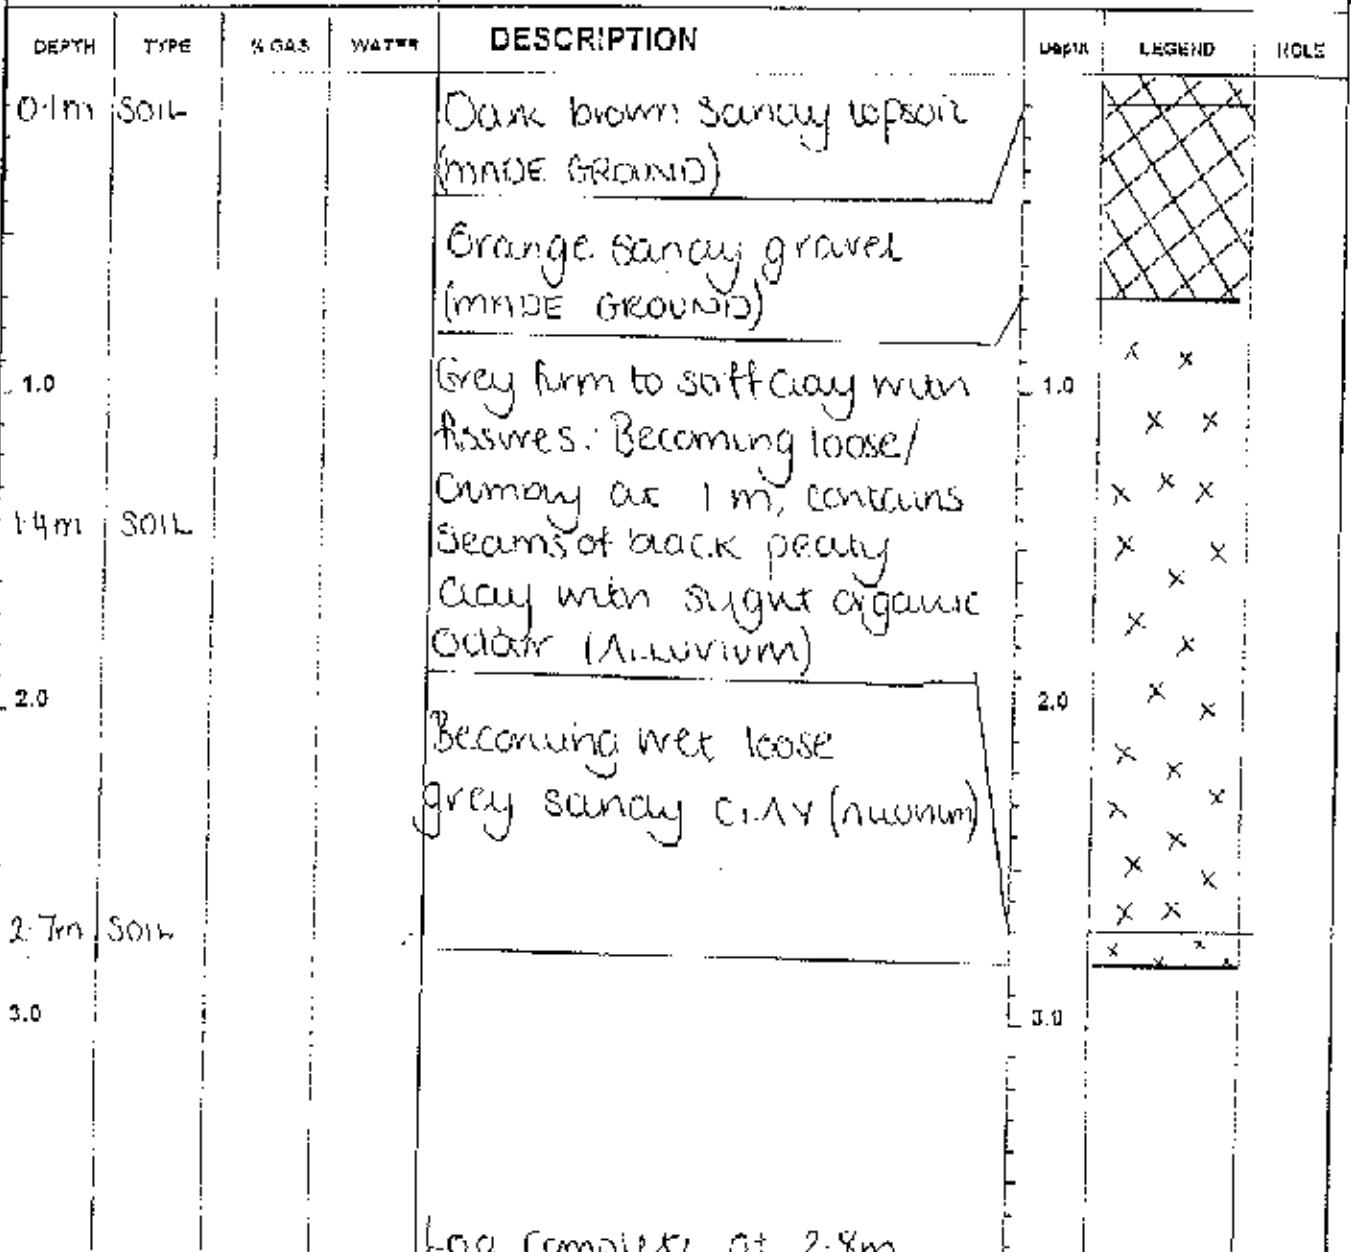 DEPTH TYPE % GAS WATER DESCRIPTION Depth LEGEND HOLE
0.1m SOIL Dark brown sandy topsoil
(MADE GROUND)
Orange sandy gravel
(MADE GROUND)
1.0 Grey firm to stiff clay with 1.0
fissures. Becoming loose/
crumbly at 1m, contains
1.4m SOIL seams of black peaty
clay with slight organic
odour (ALLUVIUM)
2.0 2.0
Becoming wet loose
grey sandy CLAY (Alluvium)
2.7m SOIL
3.0 3.0
Log complete at 2.8m